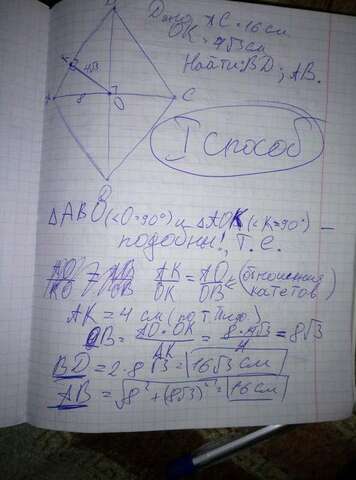 Дано: AC = 16 см
OK = 4√3 см
Найти: BD; AB.
K 4√3
8 O C
I способ
B
ΔABO (<O=90°) и ΔAOK (<K=90°) –
подобны!, т.е.
AK/OK = AO/OB (отношения
катетов)
AK = 4 см (по т. Пиф.)
OB = AO·OK/AK = 8·4√3/4 = 8√3
BD = 2·8√3 = 16√3 см
AB = √8²+(8√3)² = 16 см